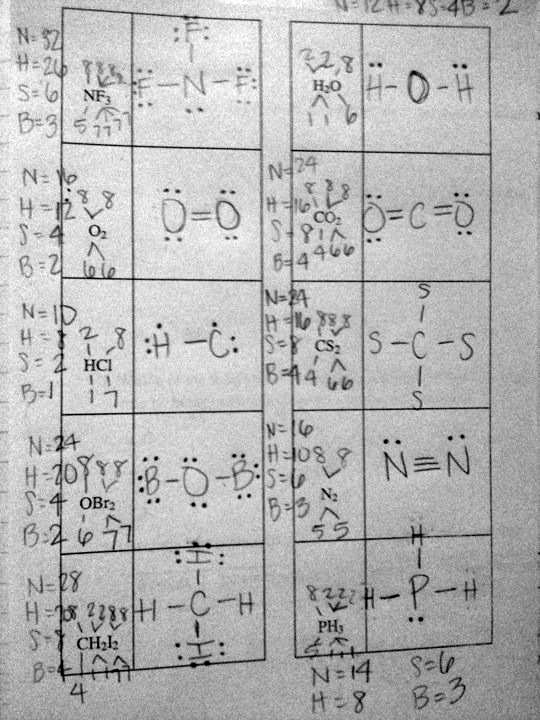 N=12 H=8 S=4 B=2
N=32
H=26
S=6
B=3
8 8 8 8
NF3
5 7 7 7
F
F - N - F
2 2 8
H2O
1 1 6
H - O - H
N=16
H=12
S=4
B=2
8 8
O2
6 6
O=O
N=24
H=16
S=8
B=4
8 8 8
CO2
4 6 6
O=C=O
N=10
H=8
S=2
B=1
2 8
HCl
1 7
H - C
N=24
H=16
S=8
B=4
8 8 8
CS2
4 6 6
S
S - C - S
S
N=24
H=20
S=4
B=2
8 8 8
OBr2
6 7 7
B - O - B
N=16
H=10
S=6
B=3
8 8
N2
5 5
N≡N
N=28
S=8
8 2 2 8 8
CH2I2
4 1 1 7 7
I
H - C - H
I
8 2 2 2
PH3
H
H - P - H
N=14
H=8
S=6
B=3